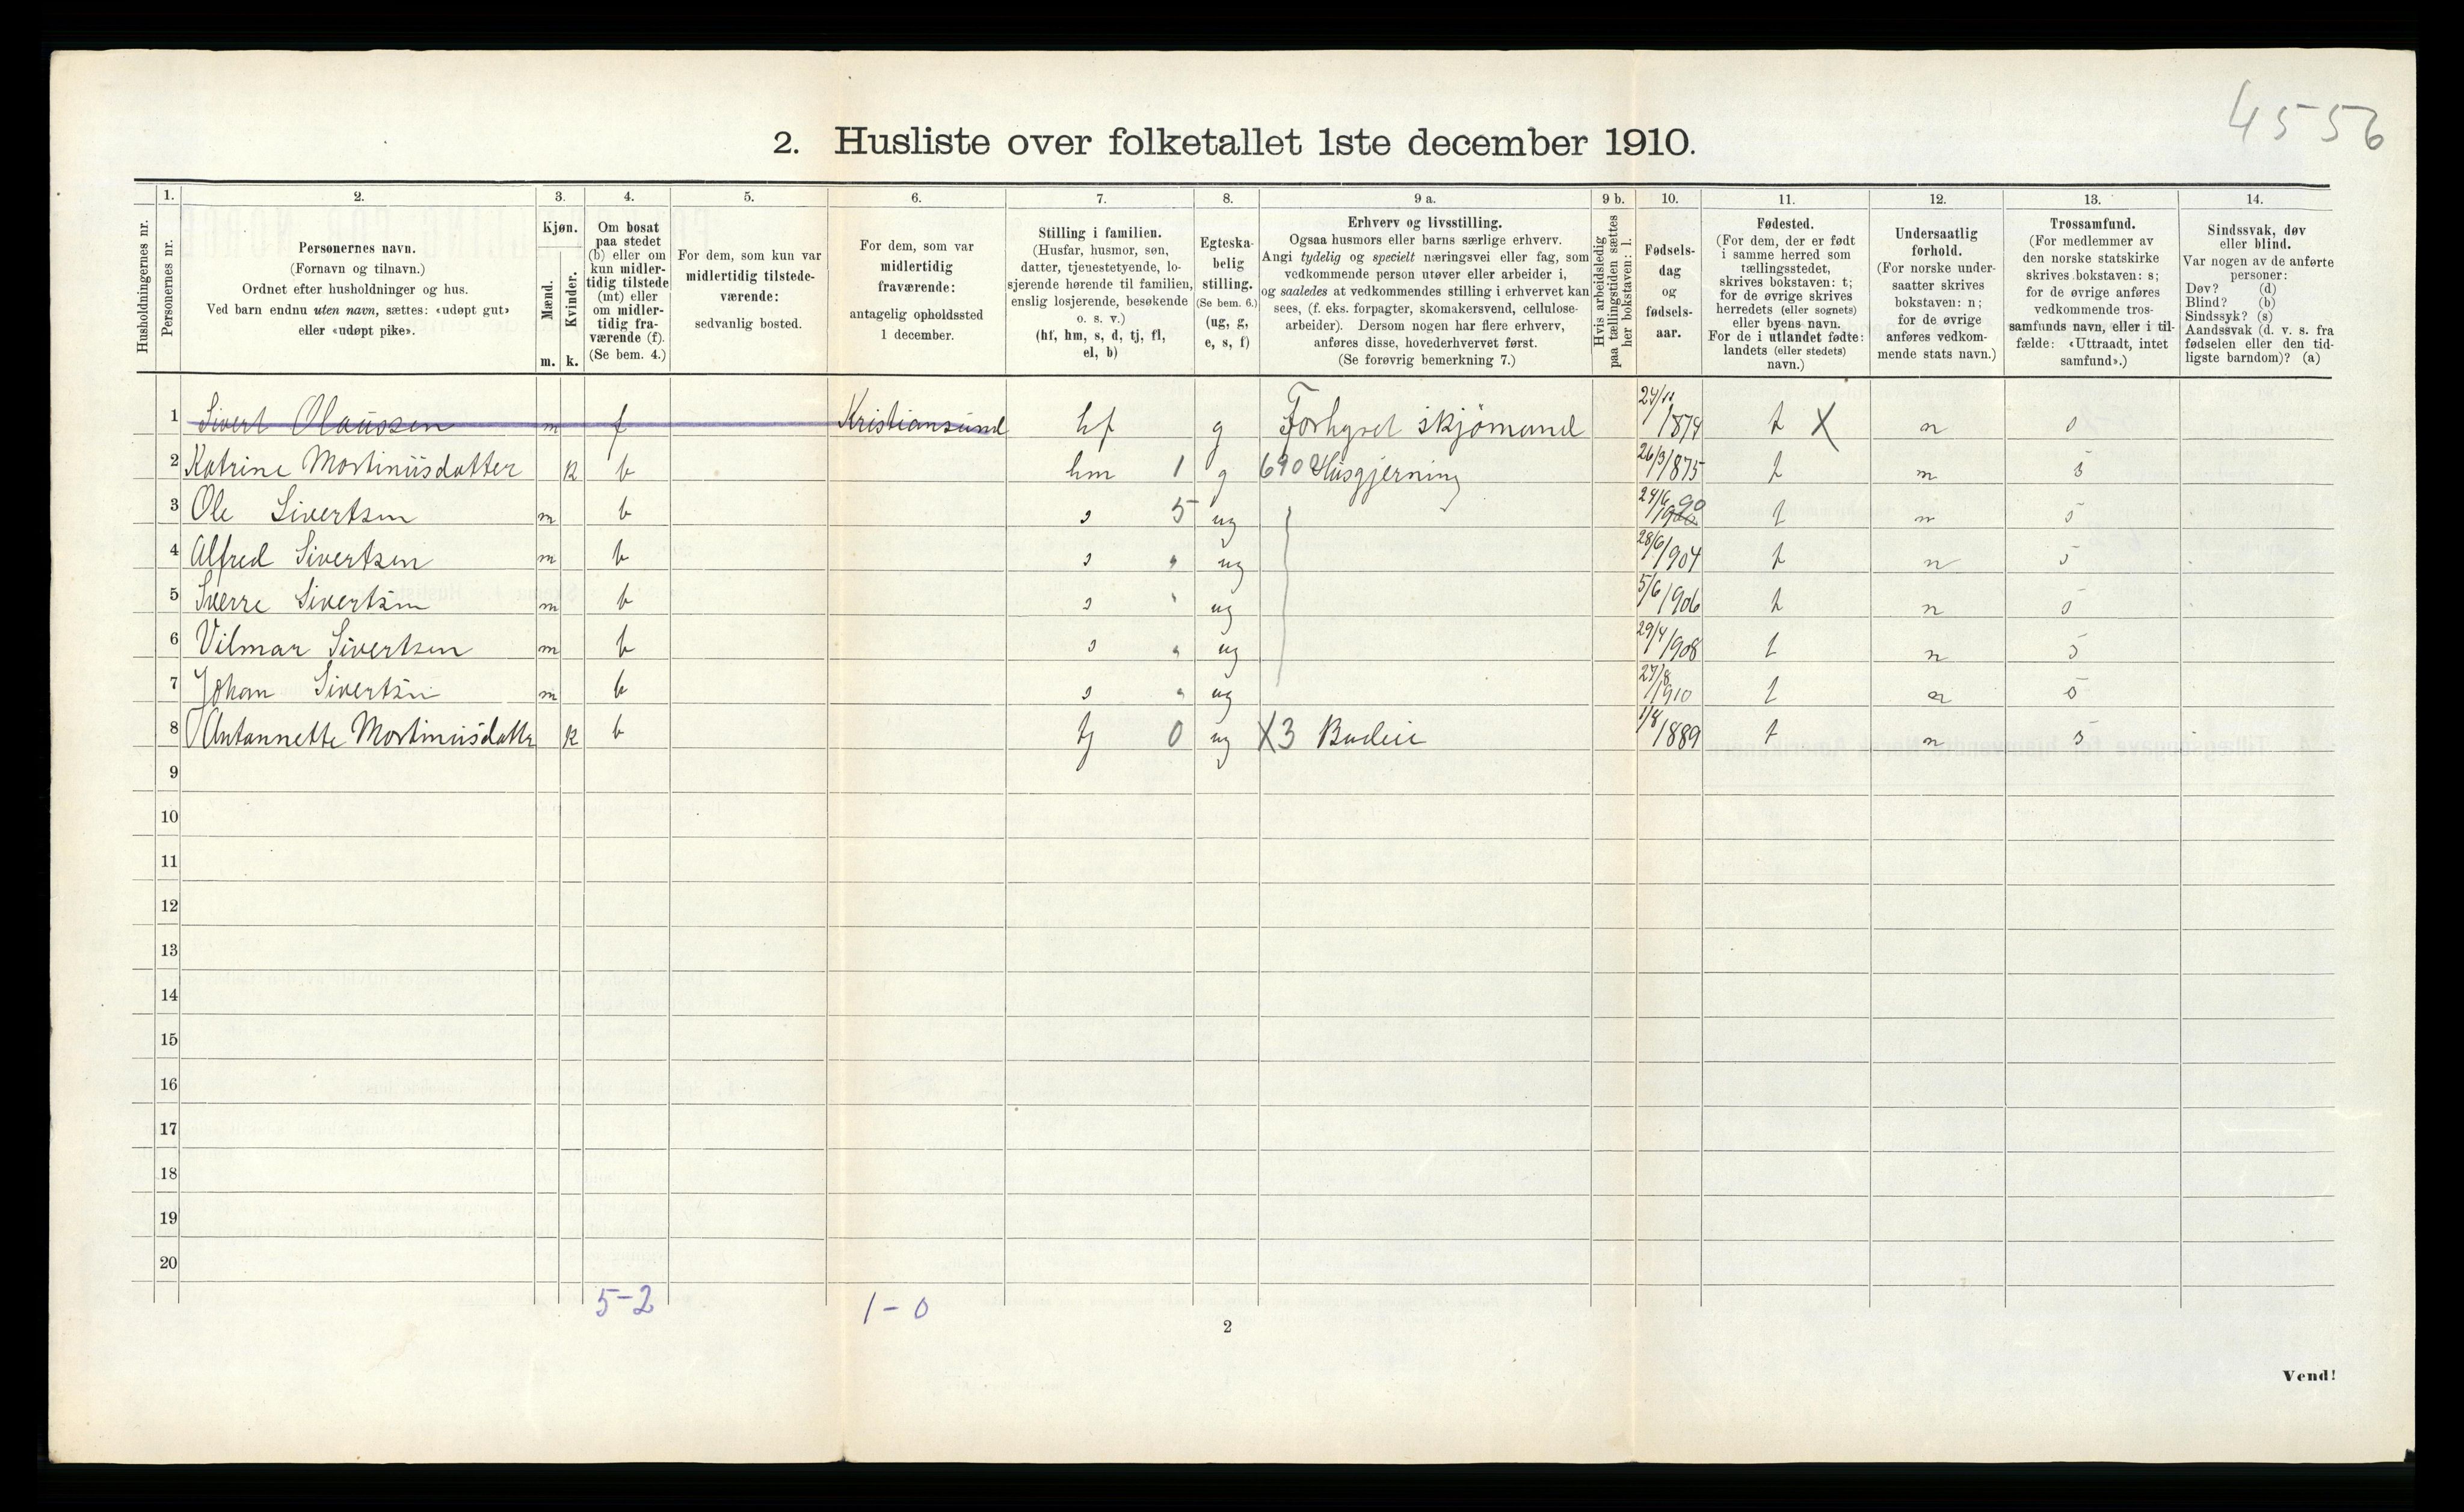 4556
2. Husliste over folketallet 1ste december 1910.
Husholdningernes nr.
1.
Personernes nr.
2.
Personernes navn.
(Fornavn og tilnavn.)
Ordnet efter husholdninger og hus.
Ved barn endnu uten navn, sættes: «udøpt gut»
eller «udøpt pike».
3.
Kjøn.
Mænd.
Kvinder.
m. k.
4.
Om bosat
paa stedet
(b) eller om
kun midler-
tidig tilstede
(mt) eller
om midler-
tidig fra-
værende (f).
(Se bem. 4.)
5.
For dem, som kun var
midlertidig tilstede-
værende:
sedvanlig bosted.
6.
For dem, som var
midlertidig
fraværende:
antagelig opholdssted
1 december.
7.
Stilling i familien.
(Husfar, husmor, søn,
datter, tjenestetyende, lo-
sjerende hørende til familien,
enslig losjerende, besøkende
o. s. v.)
(hf, hm, s, d, tj, fl,
el, b)
8.
Egteska-
belig
stilling.
(Se bem. 6.)
(ug, g,
e, s, f)
9 a.
Erhverv og livsstilling.
Ogsaa husmors eller barns særlige erhverv.
Angi tydelig og specielt næringsvei eller fag, som
vedkommende person utøver eller arbeider i,
og saaledes at vedkommendes stilling i erhvervet kan
sees, (f. eks. forpagter, skomakersvend, cellulose-
arbeider). Dersom nogen har flere erhverv,
anføres disse, hovederhvervet først.
(Se forøvrig bemerkning 7.)
9 b.
Hvis arbeidsledig
paa tællingstiden sættes
her bokstaven: l.
10.
Fødsels-
dag
og
fødsels-
aar.
11.
Fødested.
(For dem, der er født
i samme herred som
tællingsstedet,
skrives bokstaven: t;
for de øvrige skrives
herredets (eller sognets)
eller byens navn.
For de i utlandet fødte:
landets (eller stedets)
navn.)
12.
Undersaatlig
forhold.
(For norske under-
saatter skrives
bokstaven: n;
for de øvrige
anføres vedkom-
mende stats navn.)
13.
Trossamfund.
(For medlemmer av
den norske statskirke
skrives bokstaven: s;
for de øvrige anføres
vedkommende tros-
samfunds navn, eller i til-
fælde: «Uttraadt, intet
samfund».)
14.
Sindssvak, døv
eller blind.
Var nogen av de anførte
personer:
Døv? (d)
Blind? (b)
Sindssyk? (s)
Aandssvak (d. v. s. fra
fødselen eller den tid-
ligste barndom)? (a)
1 Sivert Olaussen m f Kristiansund hf g Forhyret skjömand 1874 t X n s
2 Katrine Mortinüsdatter k b hm 1 g 690 Husgjerning 26/3 1875 t n s
3 Ole Sivertsen m b s 5 ug 24/6 t n s
4 Alfred Sivertsen m b s " ug 28/6 1904 t n s
5 Sverre Sivertsen m b s " ug 5/6 1906 t n s
6 Vilmar Sivertsen m b s " ug 29/4 1908 t n s
7 Johan Sivertsen m b s " ug 27/8 1910 t n s
8 Antannette Mortinüsdatter k b tj 0 ug X3 Budeie 1/8 1889 t n s
9
10
11
12
13
14
15
16
17
18
19
20
5-2
1-0
2
Vend!